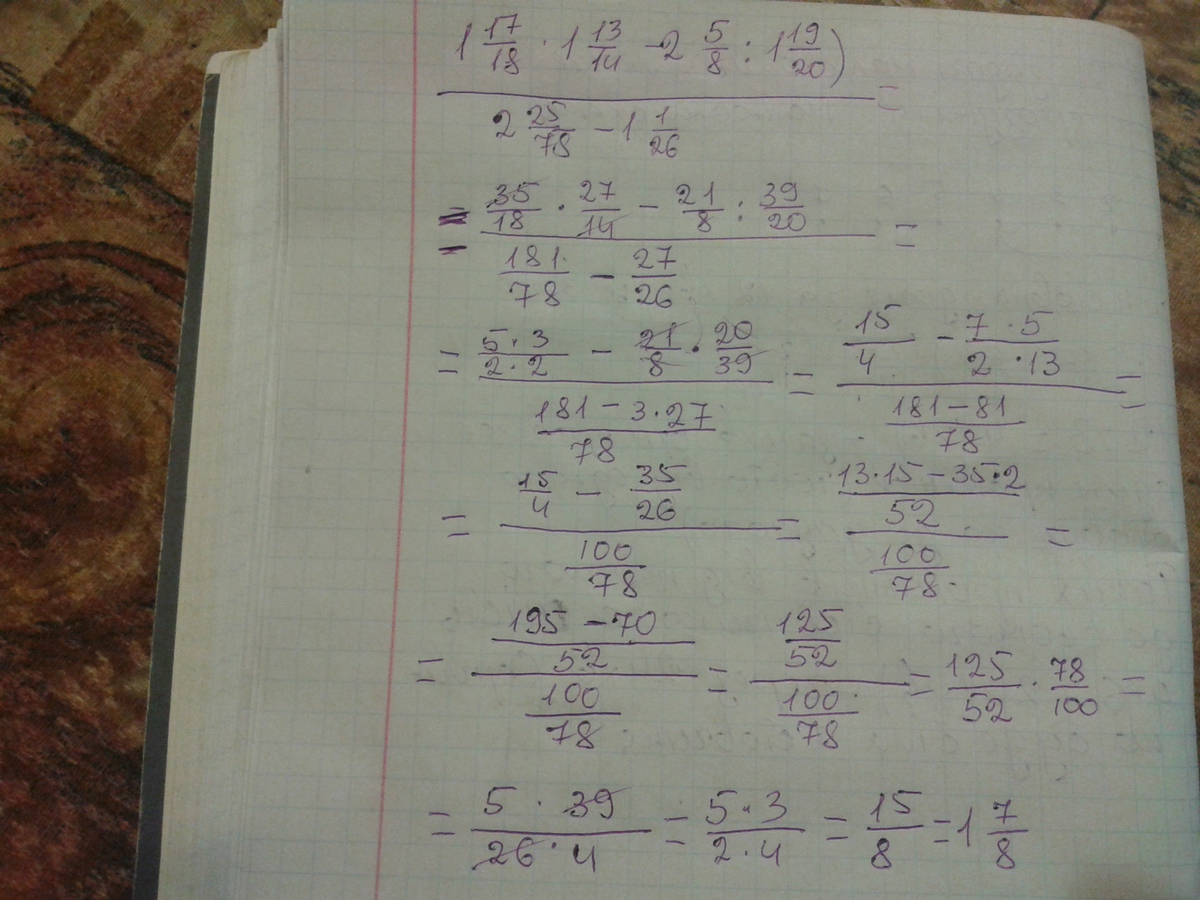 1 17/18 · 1 13/14 - 2 5/8 : 1 19/20)
———————————————— =
2 25/78 - 1 1/26
= 35/18 · 27/14 - 21/8 : 39/20
= ———————————————— =
181/78 - 27/26
= (5·3/2·2 - 21/8 · 20/39) / (181-3·27/78) = (15/4 - 7·5/2·13) / (181-81/78) =
= (15/4 - 35/26) / (100/78) = (13·15-35·2/52) / (100/78) =
= (195-70/52) / (100/78) = (125/52) / (100/78) = 125/52 · 78/100 =
= 5·39/26·4 = 5·3/2·4 = 15/8 = 1 7/8